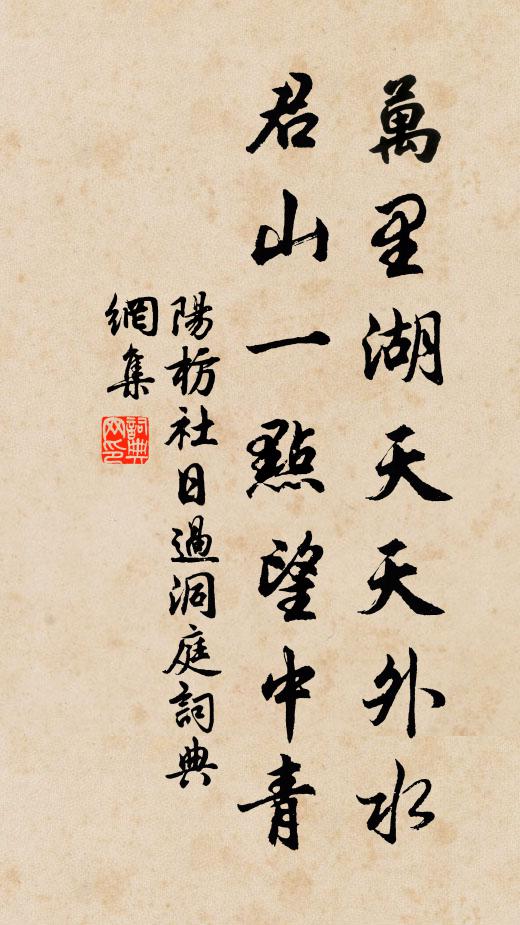 萬里湖天天外水
君山一點望中青
陽枋社日過洞庭詞典
網集
詞典网印